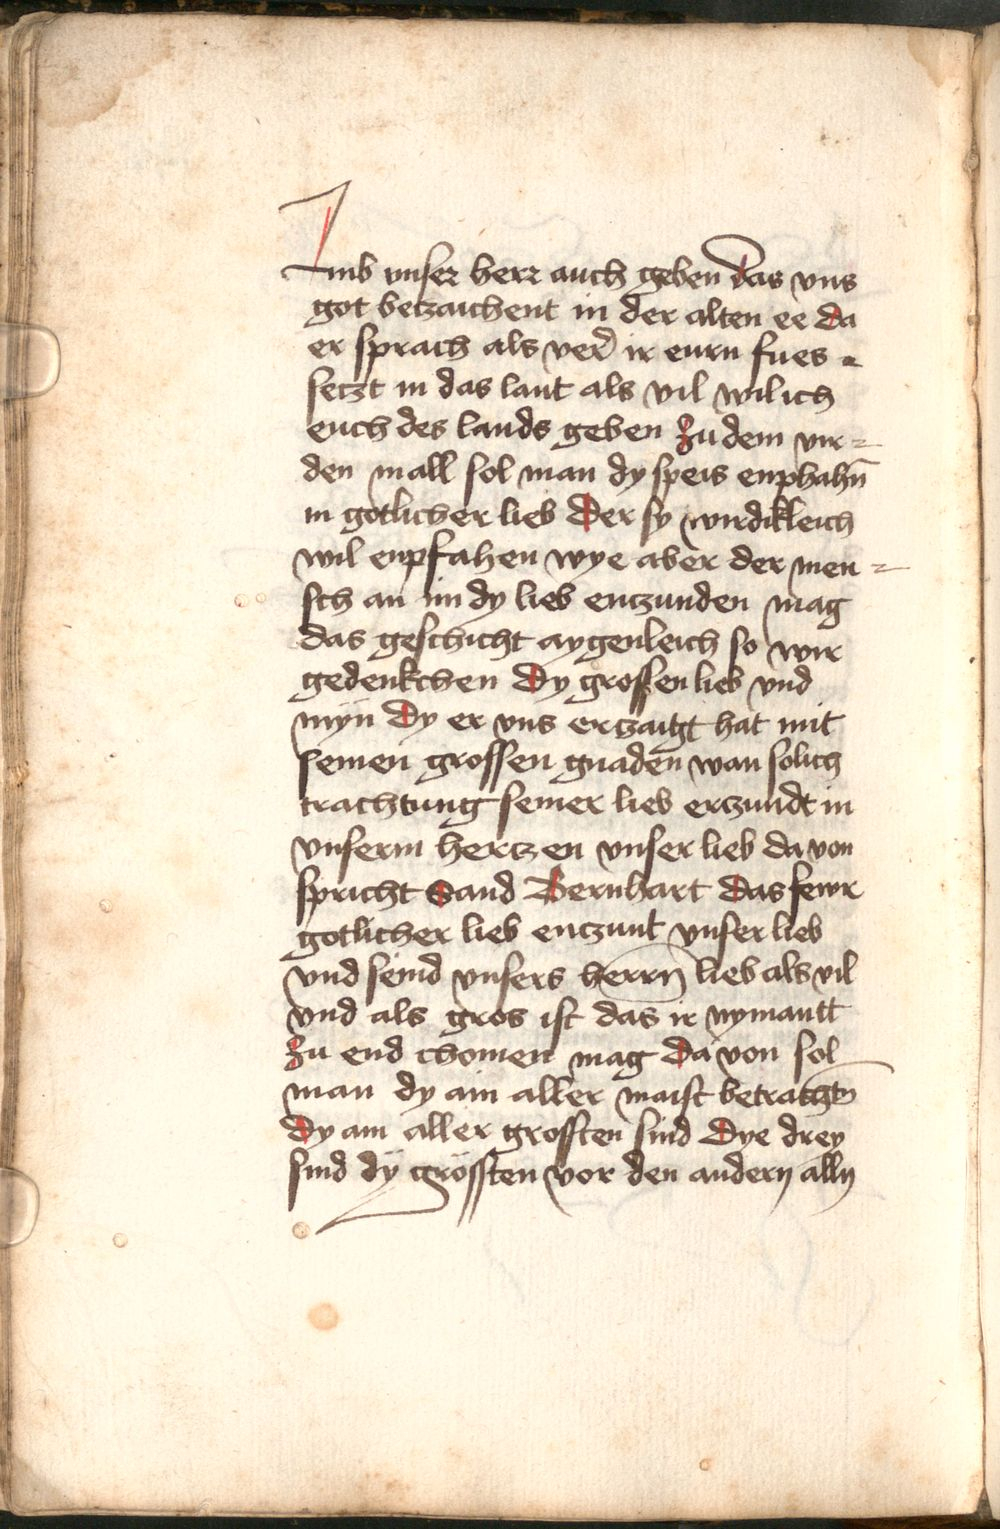 Imb unser herr auch geben das vns
got betzaichent in der alten ee da
er sprach als verr ir eurn fues
setzt in das lant als vil wil ich
euch des lands geben Zu dem vir=
den mall sol man dy speis enphahn̄
in gotlicher lieb Der sy wirdikleich
wil enpfahen wye aber der men=
sch an im dy lieb enczunden mag
das geschicht aygenleich so wir
gedenkchen Dy grossen lieb vnd
myn Dy er vns erczaigt hat mit
seinen grossen gnaden wan solich
trachtung seiner lieb erczundt in
vnserm herczen vnser lieb da von
spricht Sand Bernhart Das fewr
gotlicher lieb enczunt vnser lieb
vnd seind vnsers herrn lieb als vil
vnd als gros ist das ir nymantt
Zu end chomen mag Da von sol
man dy ain aller maist betrachtn̄
Dy am aller grossten sind Dye drey
sind dÿ grössten vor den andern alln